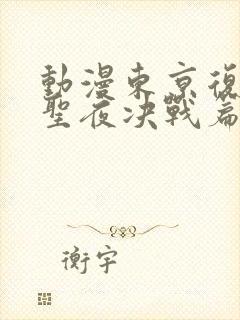 動漫東京復
聖夜決戰篇
衡宇